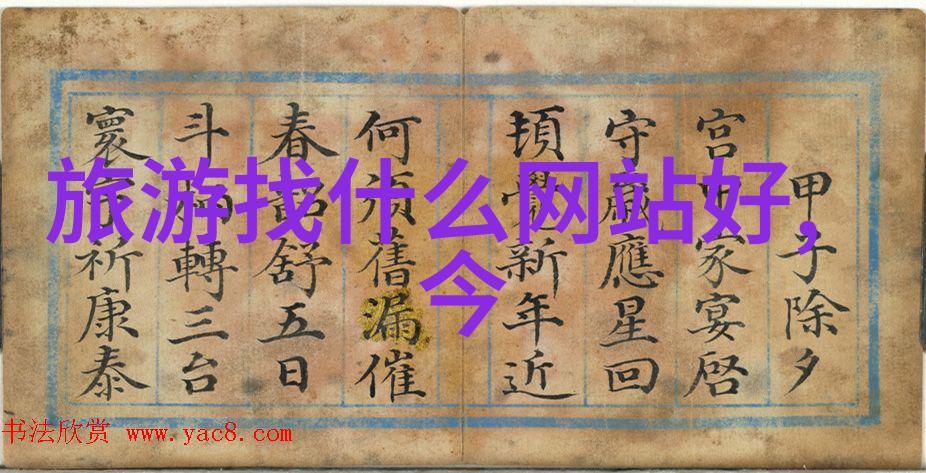 甲子除夕
宫中家宴啓
守歲應星回
頓覺新年近
何須舊漏催
春韶舒五日
斗轉三台
寰祈康泰
旅游找什么网站好，
今
书法欣赏 www.yac8.com